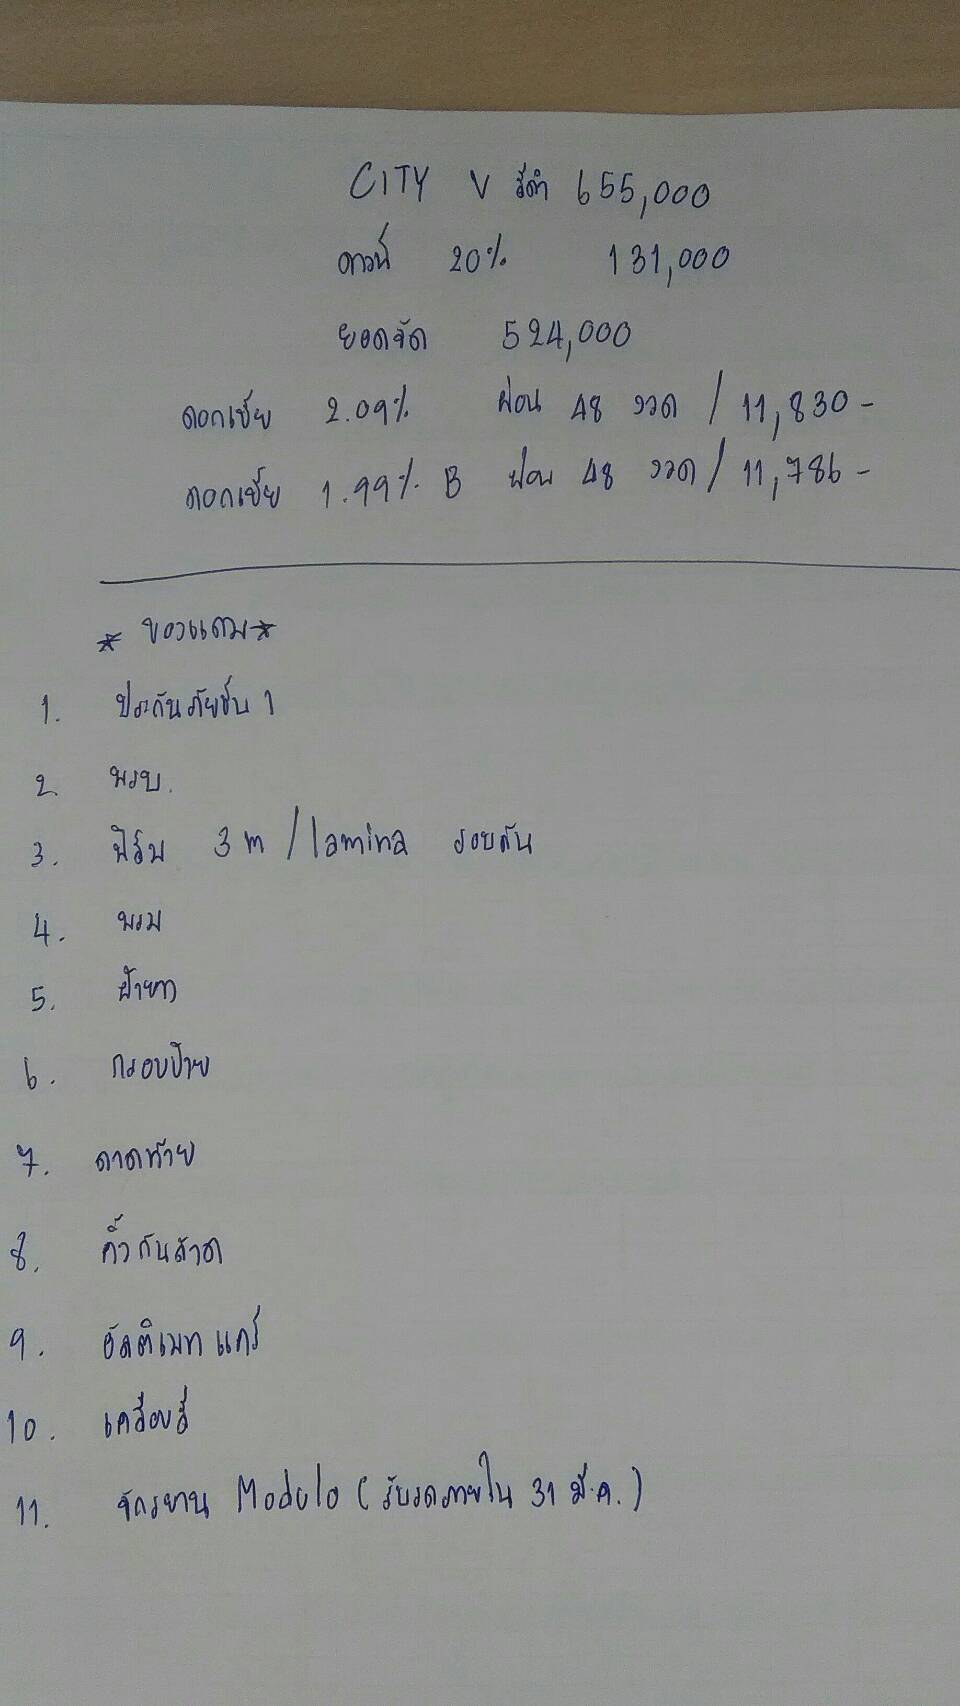 CITY V สีดำ 655,000
ดาวน์ 20% 131,000
ยอดจัด 524,000
ดอกเบี้ย 2.09% ผ่อน 48 งวด / 11,830 -
ดอกเบี้ย 1.99% B ผ่อน 48 งวด / 11,786 -
* ของแถม *
1. ประกันภัยชั้น 1
2. พรบ.
3. ฟิล์ม 3m / lamina รอบคัน
4. พรม
5. ผ้ายาง
6. กรอบป้าย
7. ถาดท้าย
8. คิ้วกันสาด
9. อัลติเมทแคร์
10. เคลือบสี
11. จักรยาน Modulo (รับรถภายใน 31 มี.ค.)